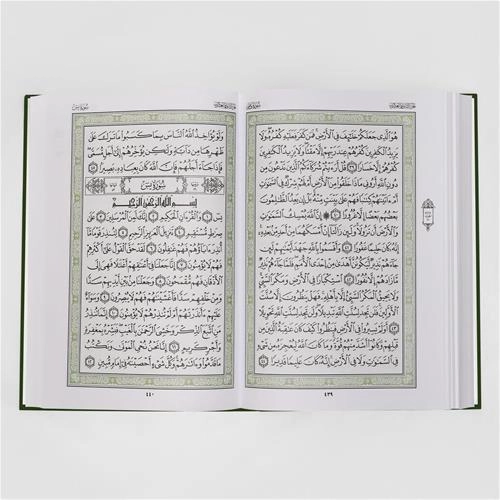 الجزء الثاني والعشرون سورة فاطر
هُوَ ٱلَّذِى جَعَلَكُمْ خَلَٰٓئِفَ فِى ٱلْأَرْضِ فَمَن كَفَرَ فَعَلَيْهِ كُفْرُهُۥ وَلَا
يَزِيدُ ٱلْكَٰفِرِينَ كُفْرُهُمْ عِندَ رَبِّهِمْ إِلَّا مَقْتًا وَلَا يَزِيدُ ٱلْكَٰفِرِينَ
كُفْرُهُمْ إِلَّا خَسَارًا ٣٩ قُلْ أَرَءَيْتُمْ شُرَكَآءَكُمُ ٱلَّذِينَ تَدْعُونَ مِن
دُونِ ٱللَّهِ أَرُونِى مَاذَا خَلَقُوا۟ مِنَ ٱلْأَرْضِ أَمْ لَهُمْ شِرْكٌ فِى ٱلسَّمَٰوَٰتِ
أَمْ ءَاتَيْنَٰهُمْ كِتَٰبًا فَهُمْ عَلَىٰ بَيِّنَتٍ مِّنْهُ بَلْ إِن يَعِدُ ٱلظَّٰلِمُونَ
بَعْضُهُم بَعْضًا إِلَّا غُرُورًا ٤٠ ۞ إِنَّ ٱللَّهَ يُمْسِكُ ٱلسَّمَٰوَٰتِ
وَٱلْأَرْضَ أَن تَزُولَا وَلَئِن زَالَتَآ إِنْ أَمْسَكَهُمَا مِنْ أَحَدٍ مِّنۢ بَعْدِهِۦٓ
إِنَّهُۥ كَانَ حَلِيمًا غَفُورًا ٤١ وَأَقْسَمُوا۟ بِٱللَّهِ جَهْدَ أَيْمَٰنِهِمْ لَئِن
جَآءَهُمْ نَذِيرٌ لَّيَكُونُنَّ أَهْدَىٰ مِنْ إِحْدَى ٱلْأُمَمِ فَلَمَّا جَآءَهُمْ نَذِيرٌ
مَّا زَادَهُمْ إِلَّا نُفُورًا ٤٢ ٱسْتِكْبَارًا فِى ٱلْأَرْضِ وَمَكْرَ ٱلسَّيِّئِ
وَلَا يَحِيقُ ٱلْمَكْرُ ٱلسَّيِّئُ إِلَّا بِأَهْلِهِۦ فَهَلْ يَنظُرُونَ إِلَّا سُنَّتَ
ٱلْأَوَّلِينَ فَلَن تَجِدَ لِسُنَّتِ ٱللَّهِ تَبْدِيلًا وَلَن تَجِدَ لِسُنَّتِ ٱللَّهِ تَحْوِيلًا
٤٣ أَوَلَمْ يَسِيرُوا۟ فِى ٱلْأَرْضِ فَيَنظُرُوا۟ كَيْفَ كَانَ عَٰقِبَةُ ٱلَّذِينَ مِن
قَبْلِهِمْ وَكَانُوٓا۟ أَشَدَّ مِنْهُمْ قُوَّةً وَمَا كَانَ ٱللَّهُ لِيُعْجِزَهُۥ مِن شَىْءٍ
فِى ٱلسَّمَٰوَٰتِ وَلَا فِى ٱلْأَرْضِ إِنَّهُۥ كَانَ عَلِيمًا قَدِيرًا ٤٤
٤٣٩
الجزء الثاني والعشرون سورة يس
وَلَوْ يُؤَاخِذُ ٱللَّهُ ٱلنَّاسَ بِمَا كَسَبُوا۟ مَا تَرَكَ عَلَىٰ
ظَهْرِهَا مِن دَآبَّةٍ وَلَٰكِن يُؤَخِّرُهُمْ إِلَىٰٓ أَجَلٍ مُّسَمًّى
فَإِذَا جَآءَ أَجَلُهُمْ فَإِنَّ ٱللَّهَ كَانَ بِعِبَادِهِۦ بَصِيرًۢا ٤٥
سُورَةُ يسٓ
بِسْمِ ٱللَّهِ ٱلرَّحْمَٰنِ ٱلرَّحِيمِ
يسٓ ١ وَٱلْقُرْءَانِ ٱلْحَكِيمِ ٢ إِنَّكَ لَمِنَ ٱلْمُرْسَلِينَ ٣ عَلَىٰ
صِرَٰطٍ مُّسْتَقِيمٍ ٤ تَنزِيلَ ٱلْعَزِيزِ ٱلرَّحِيمِ ٥ لِتُنذِرَ قَوْمًا مَّآ
أُنذِرَ ءَابَآؤُهُمْ فَهُمْ غَٰفِلُونَ ٦ لَقَدْ حَقَّ ٱلْقَوْلُ عَلَىٰٓ أَكْثَرِهِمْ
فَهُمْ لَا يُؤْمِنُونَ ٧ إِنَّا جَعَلْنَا فِىٓ أَعْنَٰقِهِمْ أَغْلَٰلًا فَهِىَ إِلَى
ٱلْأَذْقَانِ فَهُم مُّقْمَحُونَ ٨ وَجَعَلْنَا مِنۢ بَيْنِ أَيْدِيهِمْ سَدًّا
وَمِنْ خَلْفِهِمْ سَدًّا فَأَغْشَيْنَٰهُمْ فَهُمْ لَا يُبْصِرُونَ ٩ وَسَوَآءٌ
عَلَيْهِمْ ءَأَنذَرْتَهُمْ أَمْ لَمْ تُنذِرْهُمْ لَا يُؤْمِنُونَ ١٠ إِنَّمَا تُنذِرُ
مَنِ ٱتَّبَعَ ٱلذِّكْرَ وَخَشِىَ ٱلرَّحْمَٰنَ بِٱلْغَيْبِ فَبَشِّرْهُ بِمَغْفِرَةٍ
وَأَجْرٍ كَرِيمٍ ١١ إِنَّا نَحْنُ نُحْىِ ٱلْمَوْتَىٰ وَنَكْتُبُ
مَا قَدَّمُوا۟ وَءَاثَٰرَهُمْ وَكُلَّ شَىْءٍ أَحْصَيْنَٰهُ فِىٓ إِمَامٍ مُّبِينٍ ١٢
٤٤٠